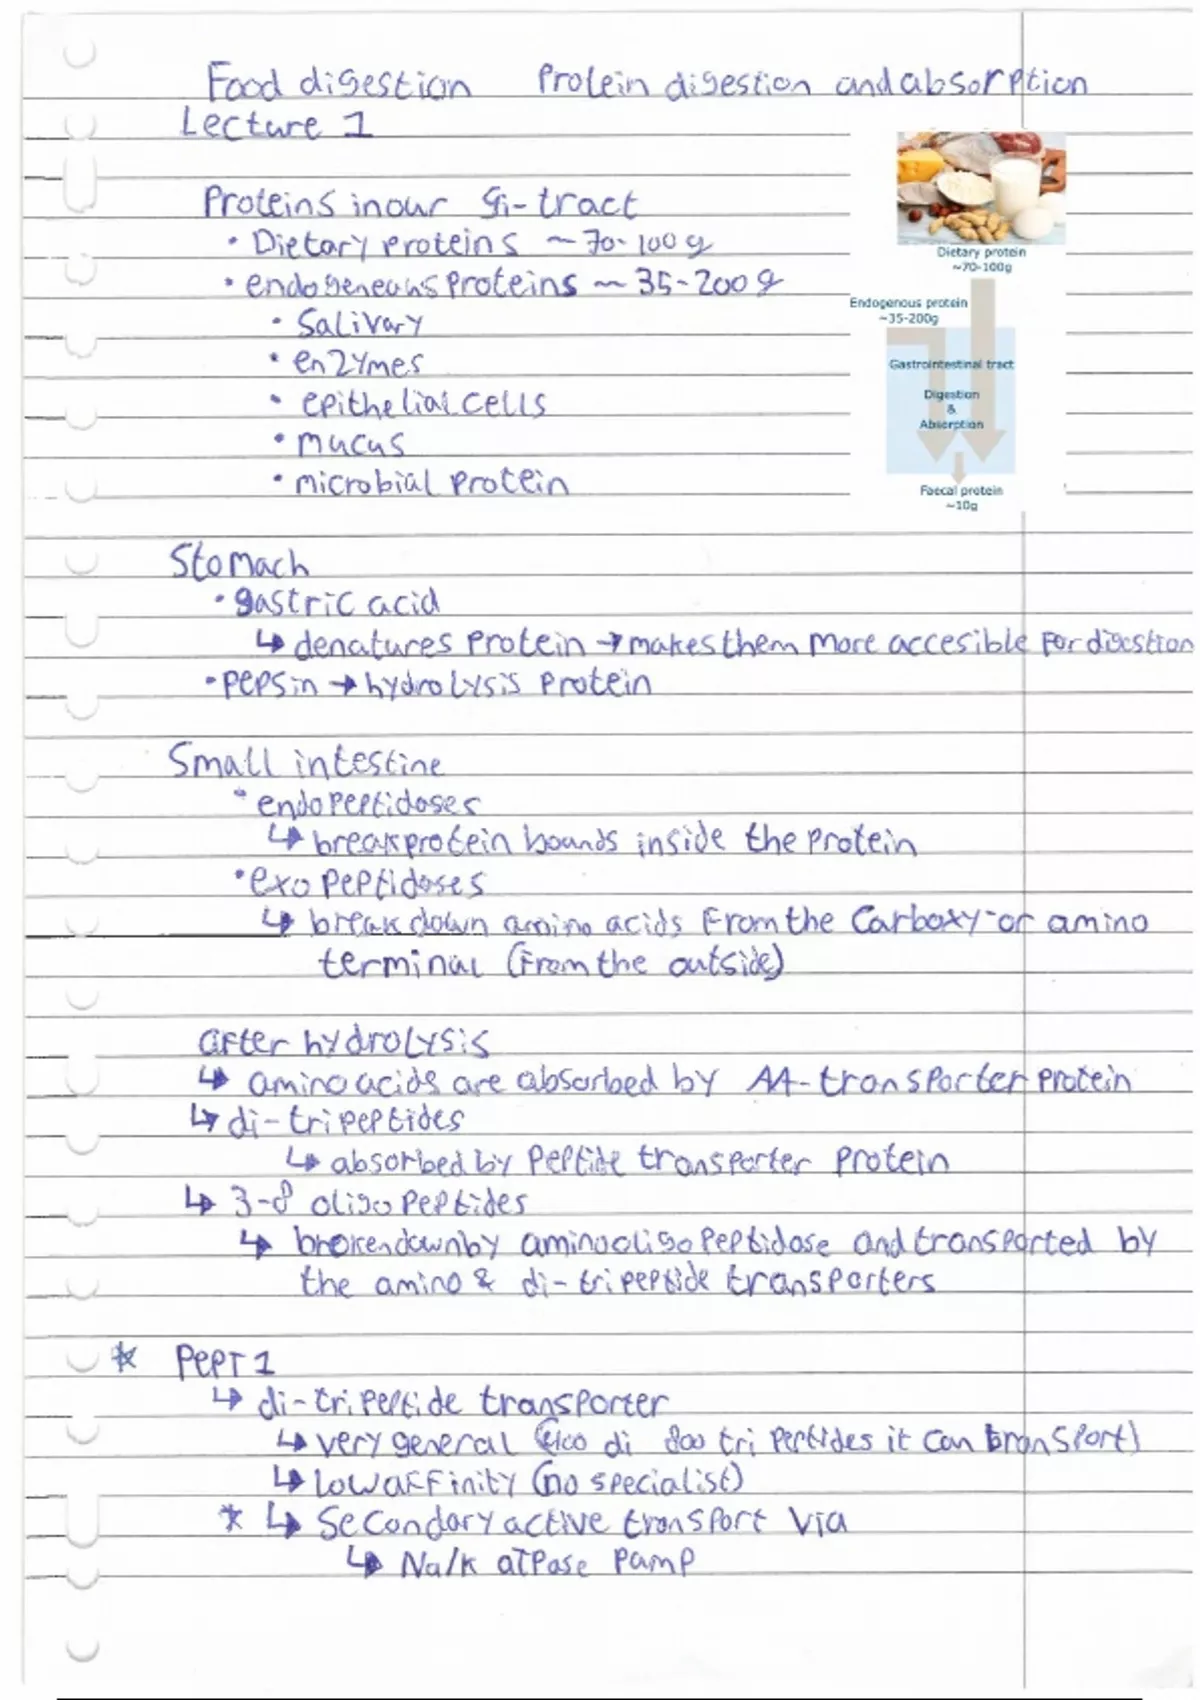 Food digestion Protein digestion and absorption
Lecture 1
Proteins in our Gi-tract
• Dietary proteins ~ 70-100 g
• endogeneous proteins ~ 35-200 g
• Salivary
• enzymes
• epithelial cells
• mucus
• microbial protein
Dietary protein
~70-100g
Endogenous protein
~35-200g
Gastrointestinal tract
Digestion
&
Absorption
Faecal protein
~10g
Stomach
• gastric acid
↳ denatures protein → makes them more accesible for digestion
• pepsin → hydrolysis protein
Small intestine
• endopeptidases
↳ breaks protein bounds inside the protein
• exopeptidases
↳ break down amino acids from the carboxy- or amino
terminal (from the outside)
after hydrolysis
↳ amino acids are absorbed by AA-transporter protein
↳ di-tripeptides
↳ absorbed by peptide transporter protein
↳ 3-8 oligopeptides
↳ broken down by aminooligopeptidase and transported by
the amino & di-tripeptide transporters
* PEPT 1
↳ di-tripeptide transporter
↳ very general di 800 tri peptides it can transport)
↳ low affinity (no specialist)
* ↳ Secondary active transport via
↳ Na/K atpase pump